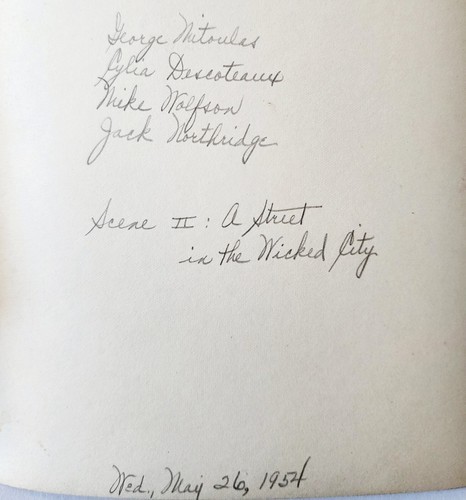 George Mitoulas
Lylia Descoteaux
Mike Wolfson
Jack Northridge
Scene II: A Street
in the Wicked City
Wed., May 26, 1954